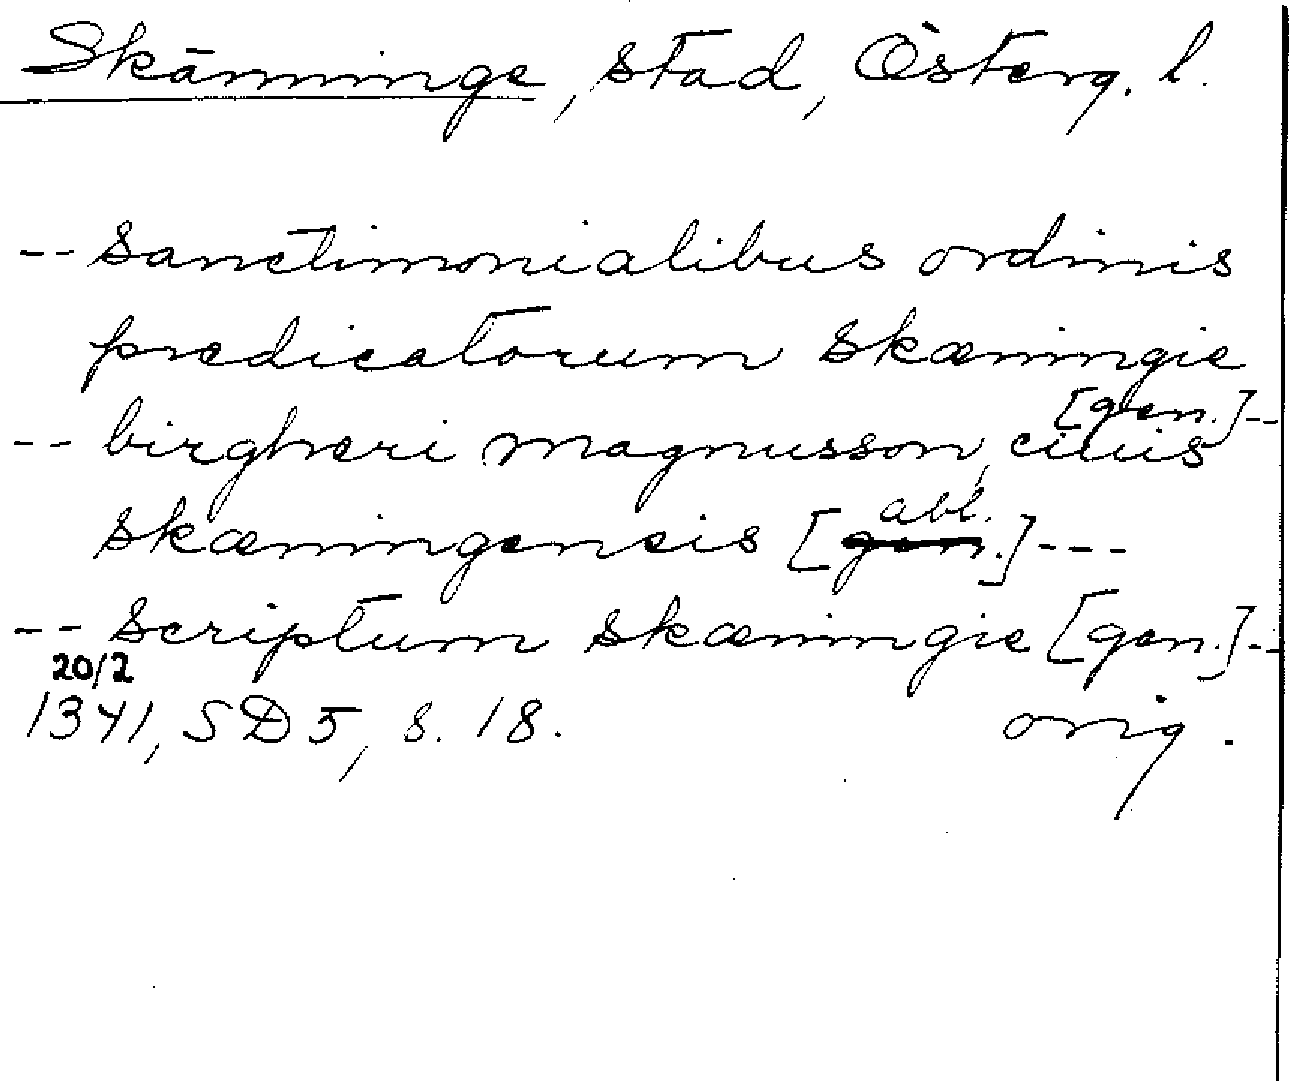 Skänninge, stad, Österg. l.
-- sanctimonialibus ordinis
predicatorum skæningie
[gen.]--
-- birgheri magnusson, ciuis
abl.
skæningensis [gen.]---
-- scriptum skæningie [gen.]--
20/2
1341, SD 5, s. 18. orig.